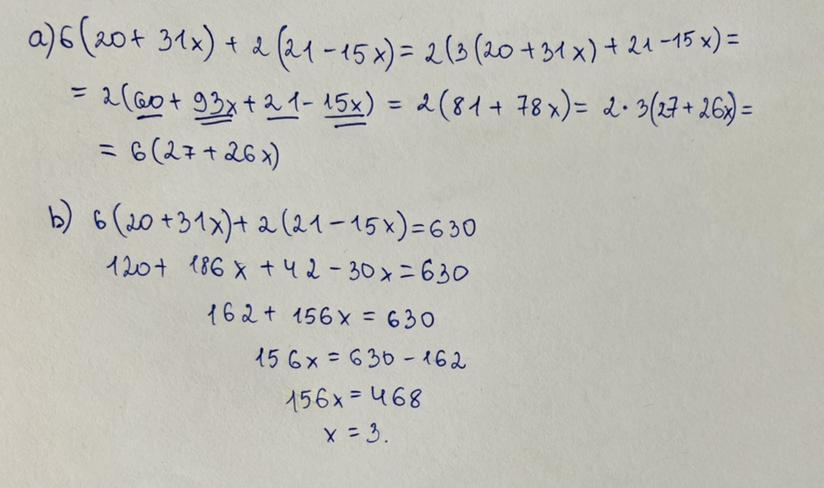 a) 6(20 + 31x) + 2(21 - 15x) = 2(3(20 + 31x) + 21 - 15x) =
= 2(60 + 93x + 21 - 15x) = 2(81 + 78x) = 2 · 3(27 + 26x) =
= 6(27 + 26x)
b) 6(20 + 31x) + 2(21 - 15x) = 630
120 + 186x + 42 - 30x = 630
162 + 156x = 630
156x = 630 - 162
156x = 468
x = 3.